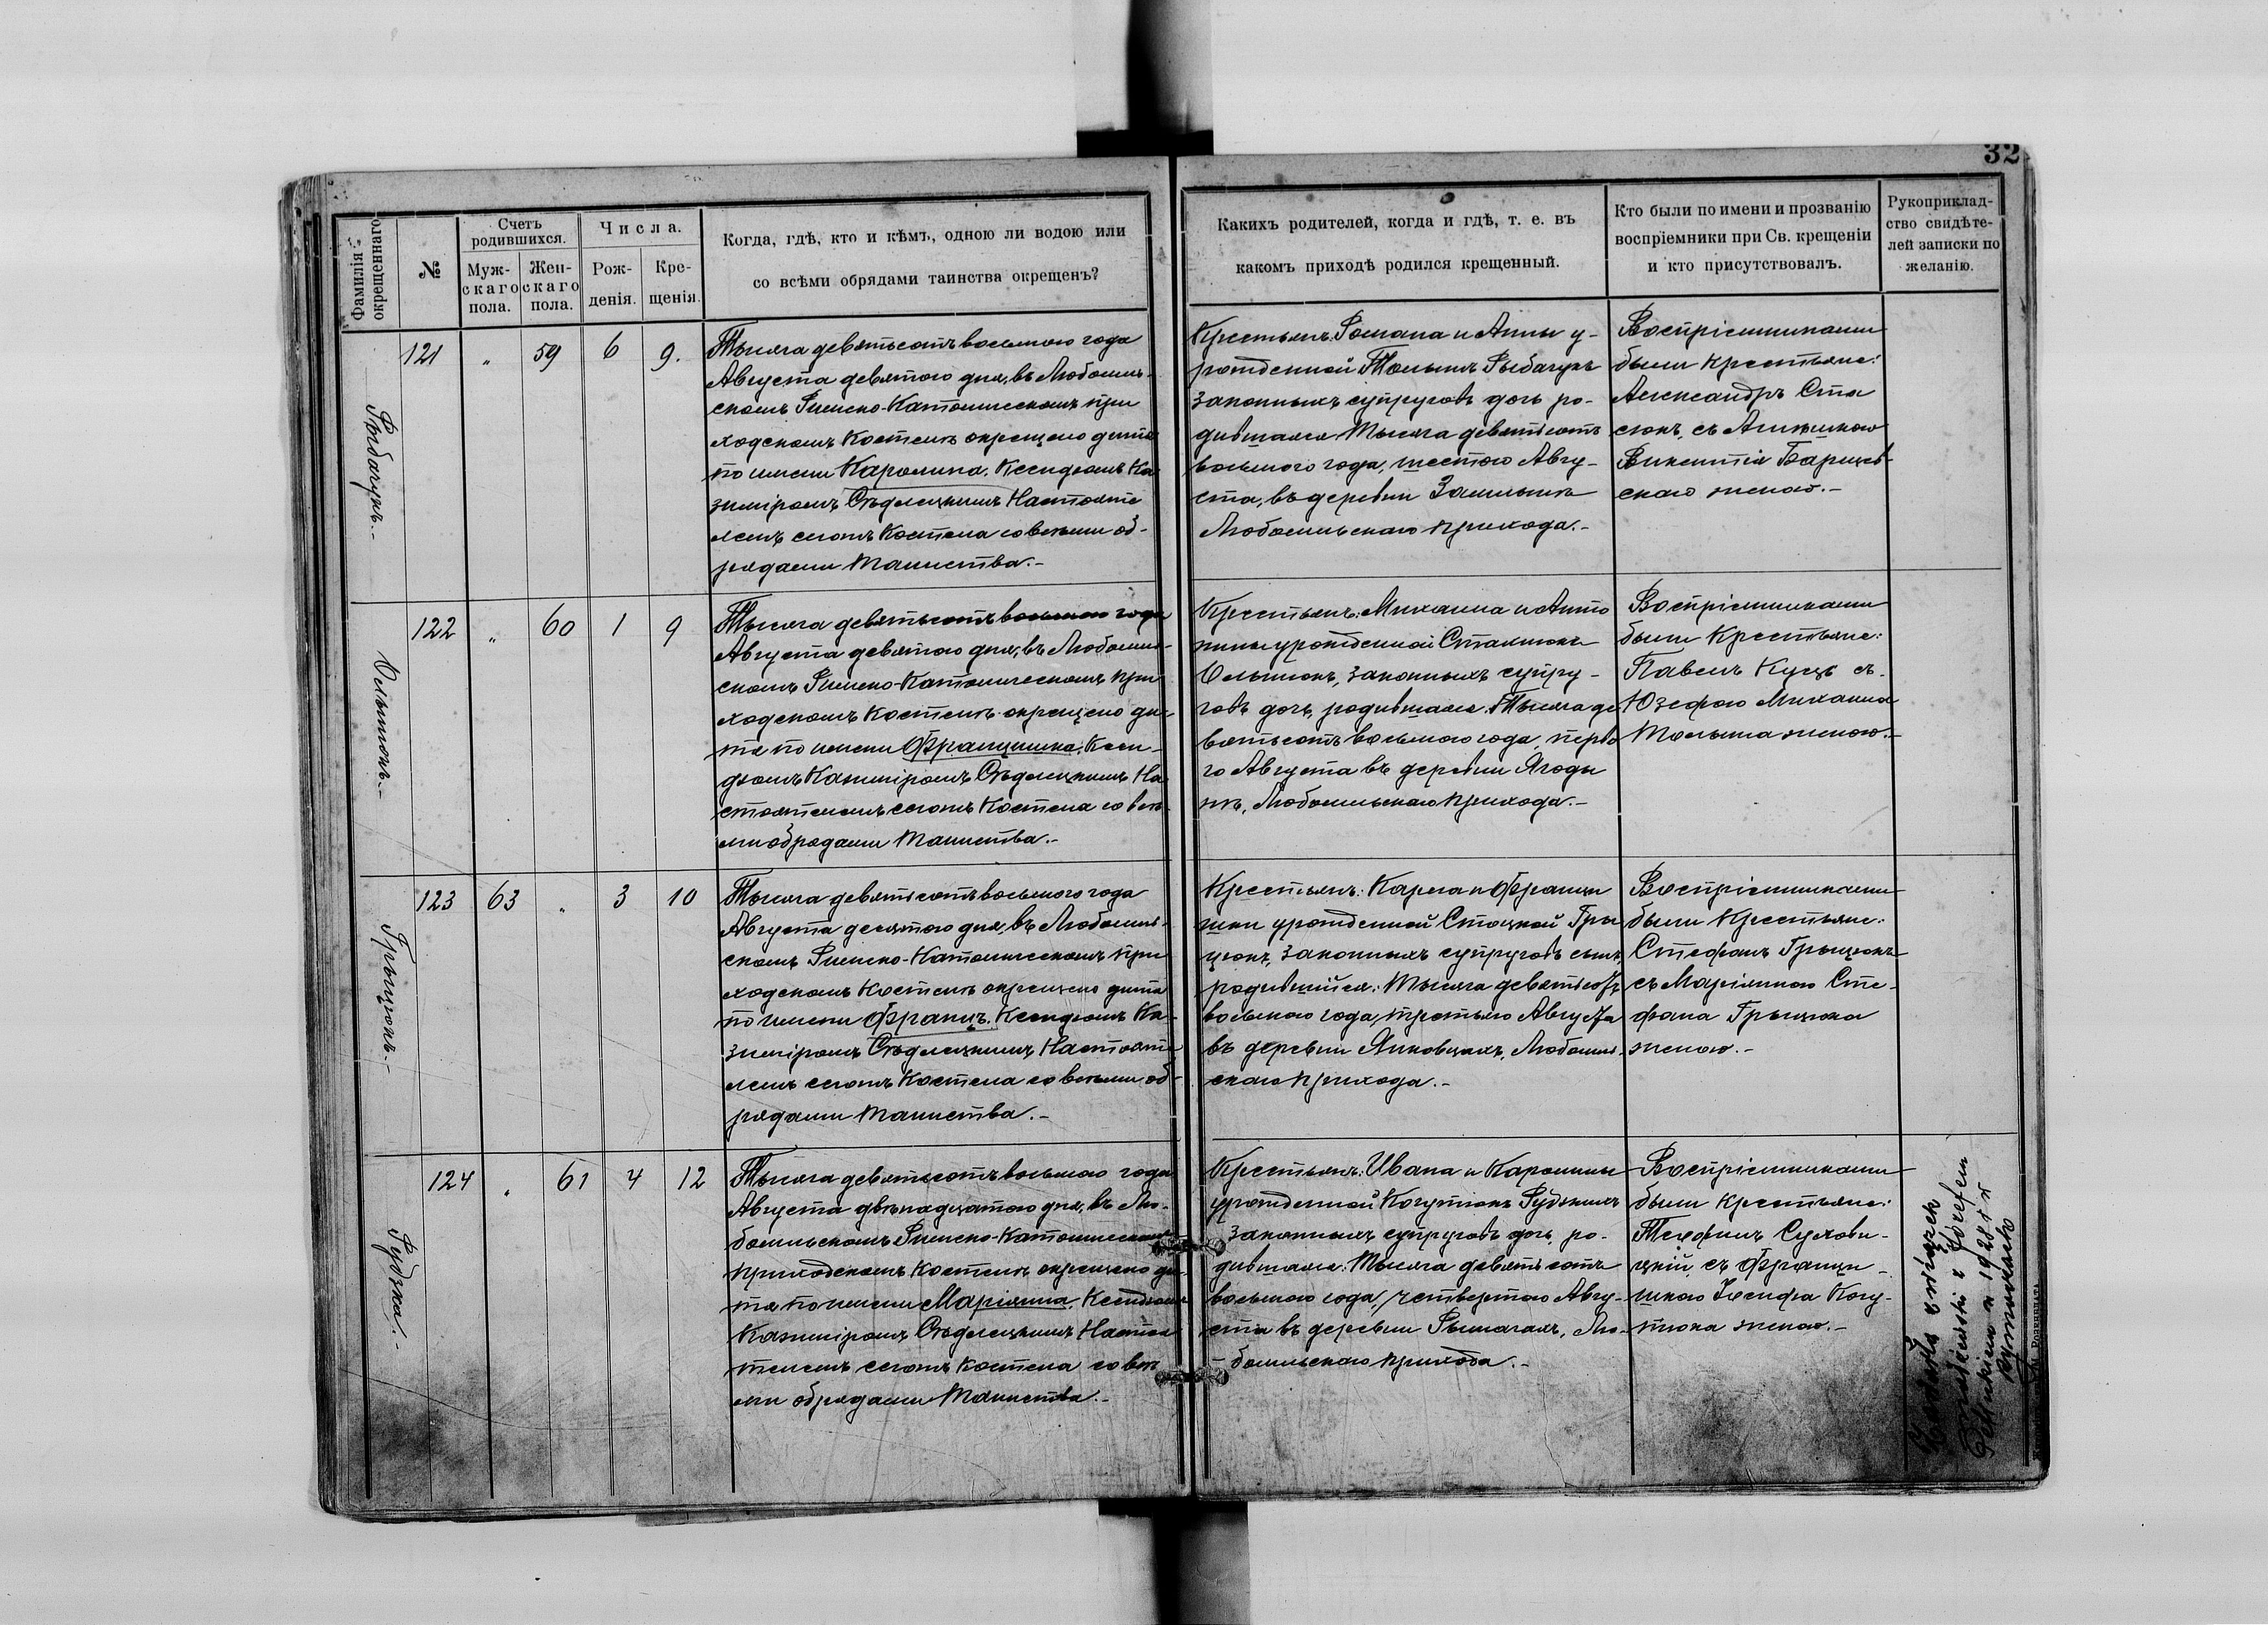 32
Фамилія окрещеннаго.
№
Счетъ родившихся.
Муж-
скаго
пола.
Жен-
скаго
пола.
Числа.
Рож-
денія.
Кре-
щенія.
Когда, гдѣ, кто и кѣмъ, одною ли водою или
со всѣми обрядами таинства окрещенъ?
Какихъ родителей, когда и гдѣ, т. е. въ
какомъ приходѣ родился крещенный.
Кто были по имени и прозванію
воспріемники при Св. крещеніи
и кто присутствовалъ.
Рукоприклад-
ство свидѣте-
лей записки по
желанію.
Рыбачукъ.-
121 " 59 6 9.
Тысяча девятьсотъ восьмого года
Августа девятого дня, въ Любомль-
скомъ Римско-Католическомъ при
ходскомъ Костелѣ окрещено дитя
по имени Каролина. Ксендзомъ Ка
зиміромъ Сѣдлецкимъ Настояте
лемъ сегожъ Костела со всѣми об-
рядами Таинства.-
Крестьянъ: Романа и Анны у-
рожденной Рыбачукъ
законныхъ супруговъ дочь ро-
дившаяся Тысяча девятьсотъ
восьмого года, шестого Авгу-
ста, въ деревни
Любомльскаго прихода.-
Воспріемниками
были крестьяне:
Александръ Ста
сюкъ, съ
Викентія
скаго женою.-
122 " 60 1 9
Тысяча девятьсотъ восьмого года
Августа девятого дня, въ Любомль-
скомъ Римско-Католическомъ при
ходскомъ Костелѣ окрещено ди-
тя по имени Францишка. Ксен-
дзомъ Казиміромъ Сѣдлецкимъ На
стоятелемъ сегожъ Костела со всѣ-
ми обрядами Таинства.-
Крестьянъ: Михаила и Анто
нины урожденной
законныхъ супру-
говъ дочь, родившаяся: Тысяча де
вятьсотъ восьмого года, перво
го Августа въ деревни Ягоды
нѣ, Любомльскаго прихода.-
Воспріемниками
были Крестьяне:
Павелъ Куцъ съ
Юзефою Михаила
женою.-
Грыцюкъ.-
123 63 " 3 10
Тысяча девятьсотъ восьмого года
Августа десятого дня, въ Любомль-
скомъ Римско-Католическомъ при
ходскомъ Костелѣ окрещено дитя
по имени Францъ. Ксендзомъ Ка-
зиміромъ Сѣдлецкимъ Настояте
лемъ сегожъ Костела со всѣми об-
рядами Таинства.-
Крестьянъ: Карла и Францы
шки урожденной Стоцкой Гры
цюкъ, законныхъ супруговъ сынъ,
родившійся: Тысяча девятьсотъ
восьмого года, третьяго Августа
въ деревни Янковцахъ, Любомль-
скаго прихода.-
Воспріемниками
были Крестьяне:
Стефанъ Грыцюкъ
съ Маріянною Сте-
фана Грыцюка
женою.-
Рудзка.-
124 " 61 4 12
Тысяча девятьсотъ восьмого года
Августа двѣнадцатого дня, въ Лю-
бомльскомъ Римско-Католическомъ
приходскомъ Костелѣ окрещено ди-
тя по имени Маріянна. Ксендзомъ
Казиміромъ Сѣдлецкимъ Настоя
телемъ сегожъ Костела со всѣ
ми обрядами Таинства.-
Крестьянъ: Ивана и Каролины
урожденной Когутюкъ Рудзкихъ
законныхъ супруговъ дочь, ро-
дившаяся: Тысяча девятьсотъ
восьмого года, четвертого Авгу-
ста въ деревни Рымачахъ, Лю-
бомльскаго прихода.-
Воспріемниками
были крестьяне:
Теофилъ Сухови-
цкій, съ Францы-
шкою Іосифа Когу-
тюка женою.-
Zawarła związek
małżeński z Józefem
1928 r. w
Rymaczach